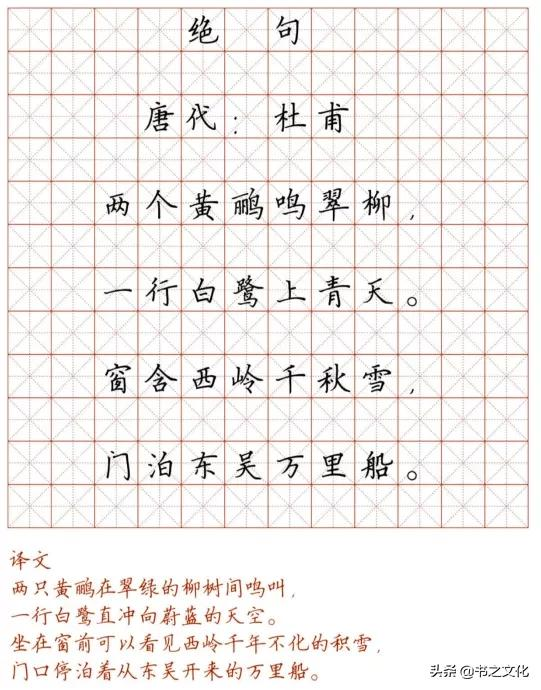 绝句
唐代：杜甫
两个黄鹂鸣翠柳，
一行白鹭上青天。
窗含西岭千秋雪，
门泊东吴万里船。
译文
两只黄鹂在翠绿的柳树间鸣叫，
一行白鹭直冲向蔚蓝的天空。
坐在窗前可以看见西岭千年不化的积雪，
门口停泊着从东吴开来的万里船。
头条 @书之文化